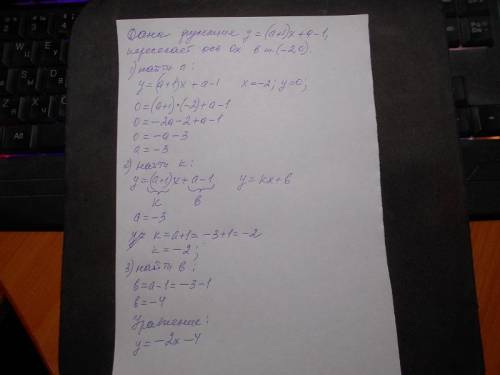 Дана функция y=(a+1)x+a-1,
пересекает ось Ox в т.(-2,0).
1) найти a:
y=(a+1)x+a-1 x=-2; y=0;
0=(a+1)·(-2)+a-1
0=-2a-2+a-1
0=-a-3
a=-3
2) найти k:
y=(a+1)x+a-1 y=kx+b
k b
a=-3
k=a+1=-3+1=-2
k=-2;
3) найти b:
b=a-1=-3-1
b=-4
Уравнение:
y=-2x-4